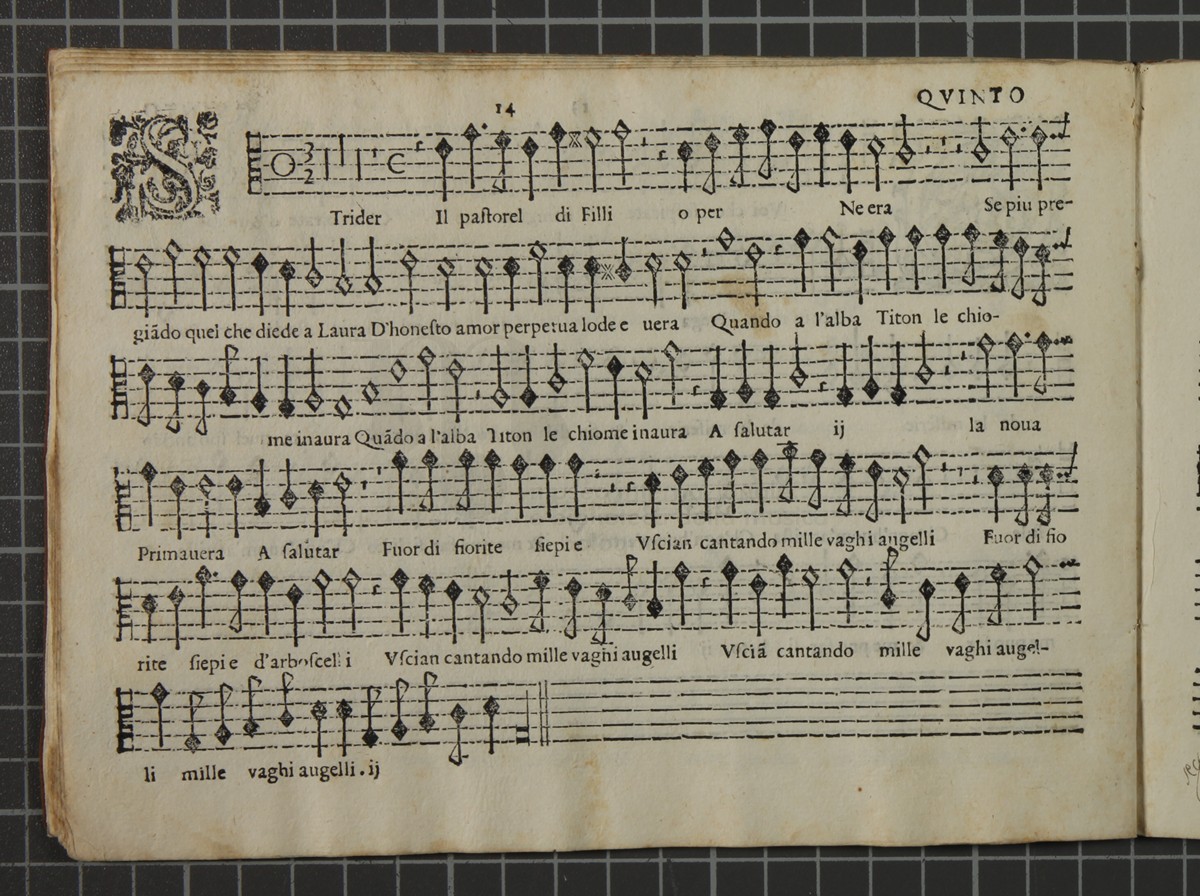 14
QVINTO
S Trider Il pastorel di Filli o per Ne era Se piu pre-
giãdo quel che diede a Laura D'honesto amor perpetua lode e uera Quando a l'alba Titon le chio-
me inaura Quãdo a l'alba Titon le chiome inaura A salutar ij la noua
Primauera A salutar Fuor di fiorite siepi e Vscian cantando mille vaghi augelli Fuor di fio
rite siepi e d'arboscelli Vscian cantando mille vaghi augelli Vsciã cantando mille vaghi augel-
li mille vaghi augelli . ij